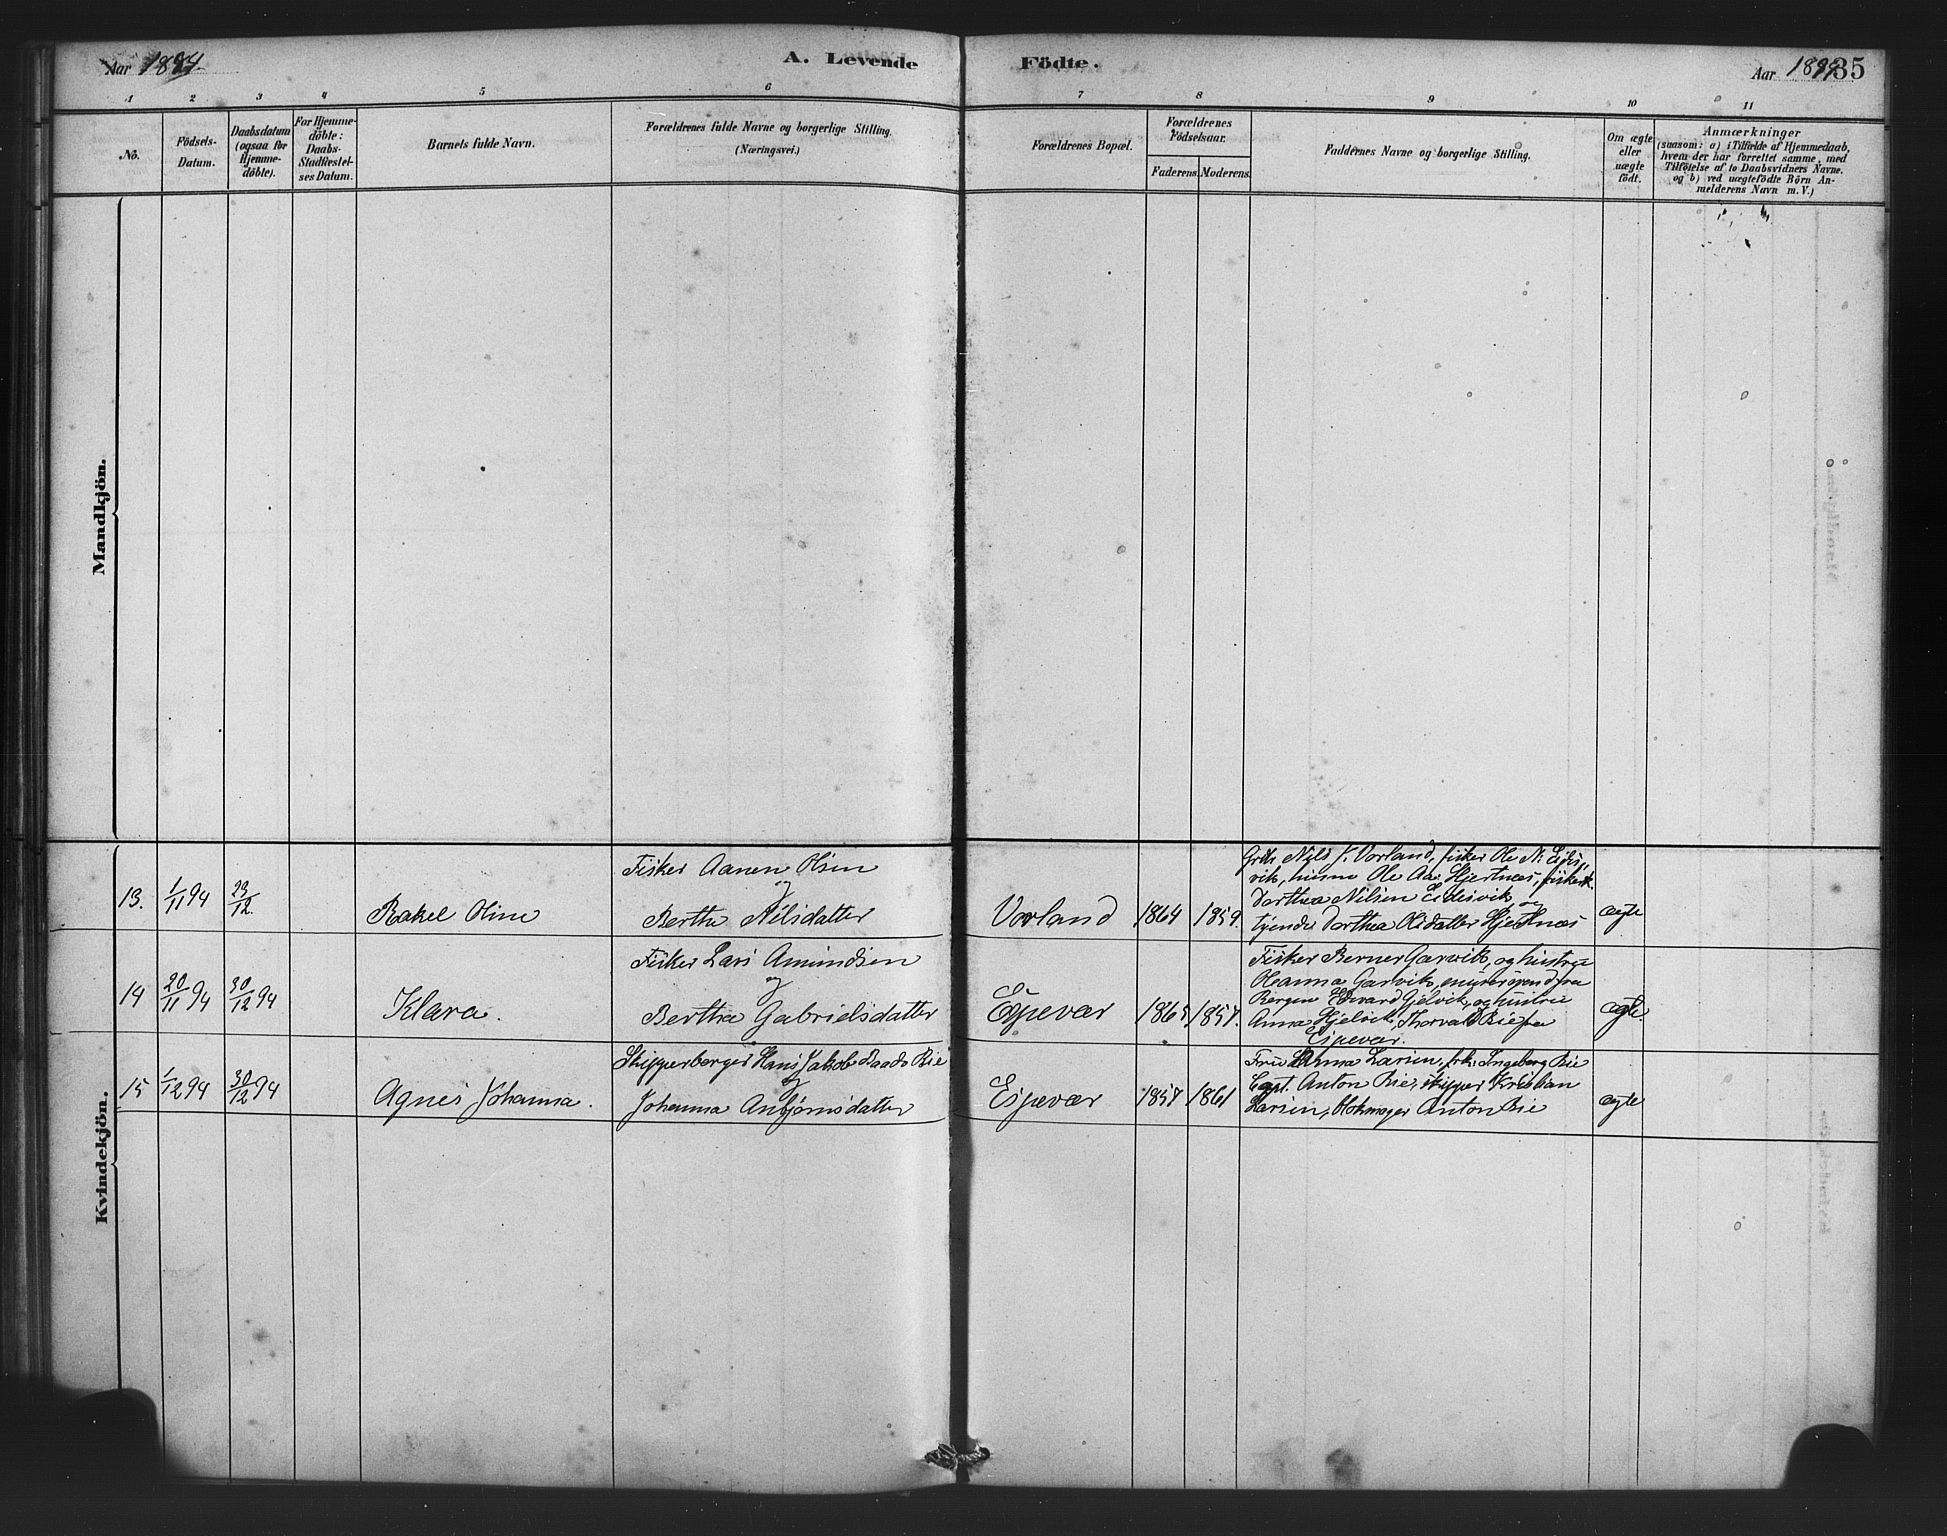 Aar 1894.
A. Levende
Födte.
Aar 1894
35
1 2 3 4 5 6 7 8 9 10 11
No.
Födsels-
Datum.
Daabsdatum
(ogsaa for
Hjemme-
döbte).
For Hjemme-
döbte:
Daabs-
Stadfæstel-
ses Datum.
Barnets fulde Navn.
Forældrenes fulde Navne og borgerlige Stilling.
(Næringsvei.)
Forældrenes Bopæl.
Forældrenes
Födselsaar.
Faderens. Moderens.
Faddernes Navne og borgerlige Stilling.
Om ægte
eller
uægte
födt.
Anmærkninger
(saasom: a) i Tilfælde af Hjemmedaab,
hvem der har forrettet samme, med
Tilföielse af to Daabsvidners Navne.
og b) ved uægtefödte Börn An-
melderens Navn m. V.)
Mandkjön.
Kvindekjön.
13.
1/11 94
23/12.
Rakel Oline
Fisker Aanen Olsen
og
Berthe Nilsdatter
Vorland
1864
1859.
Nils J. Vorland, fisker Ole N. Eides-
vik, Ole Aa. Hjertnæs,
Dorthea Nilsen Eidesvik og
tjende Dorthea Olsdatter Hjertnæs
ægte
14
20/11 94
30/12 94
Klara.
Fisker Lars Amundsen
og
Bertha Gabrielsdatter
Espevær
1865
1857.
Fisker Berner Garvik, og hustru
Oleanna Garvik, fra
Bergen Edvard Gjelvik, og hustru
Anna Hjelvik, Thorvald Bie fra
Espevær.
ægte.
15
1/12 94
30/12 94
Agnes Johanna.
Skipperborger Hans Jakob Baade Bie
og
Johanna Anbjørnsdatter
Espevær
1857
1861
Fru Anna Larsen, frk. Ingeborg Bie
Capt. Anton Bie, skipper Kristian
Larsen, blokmager Anton Bie
ægte